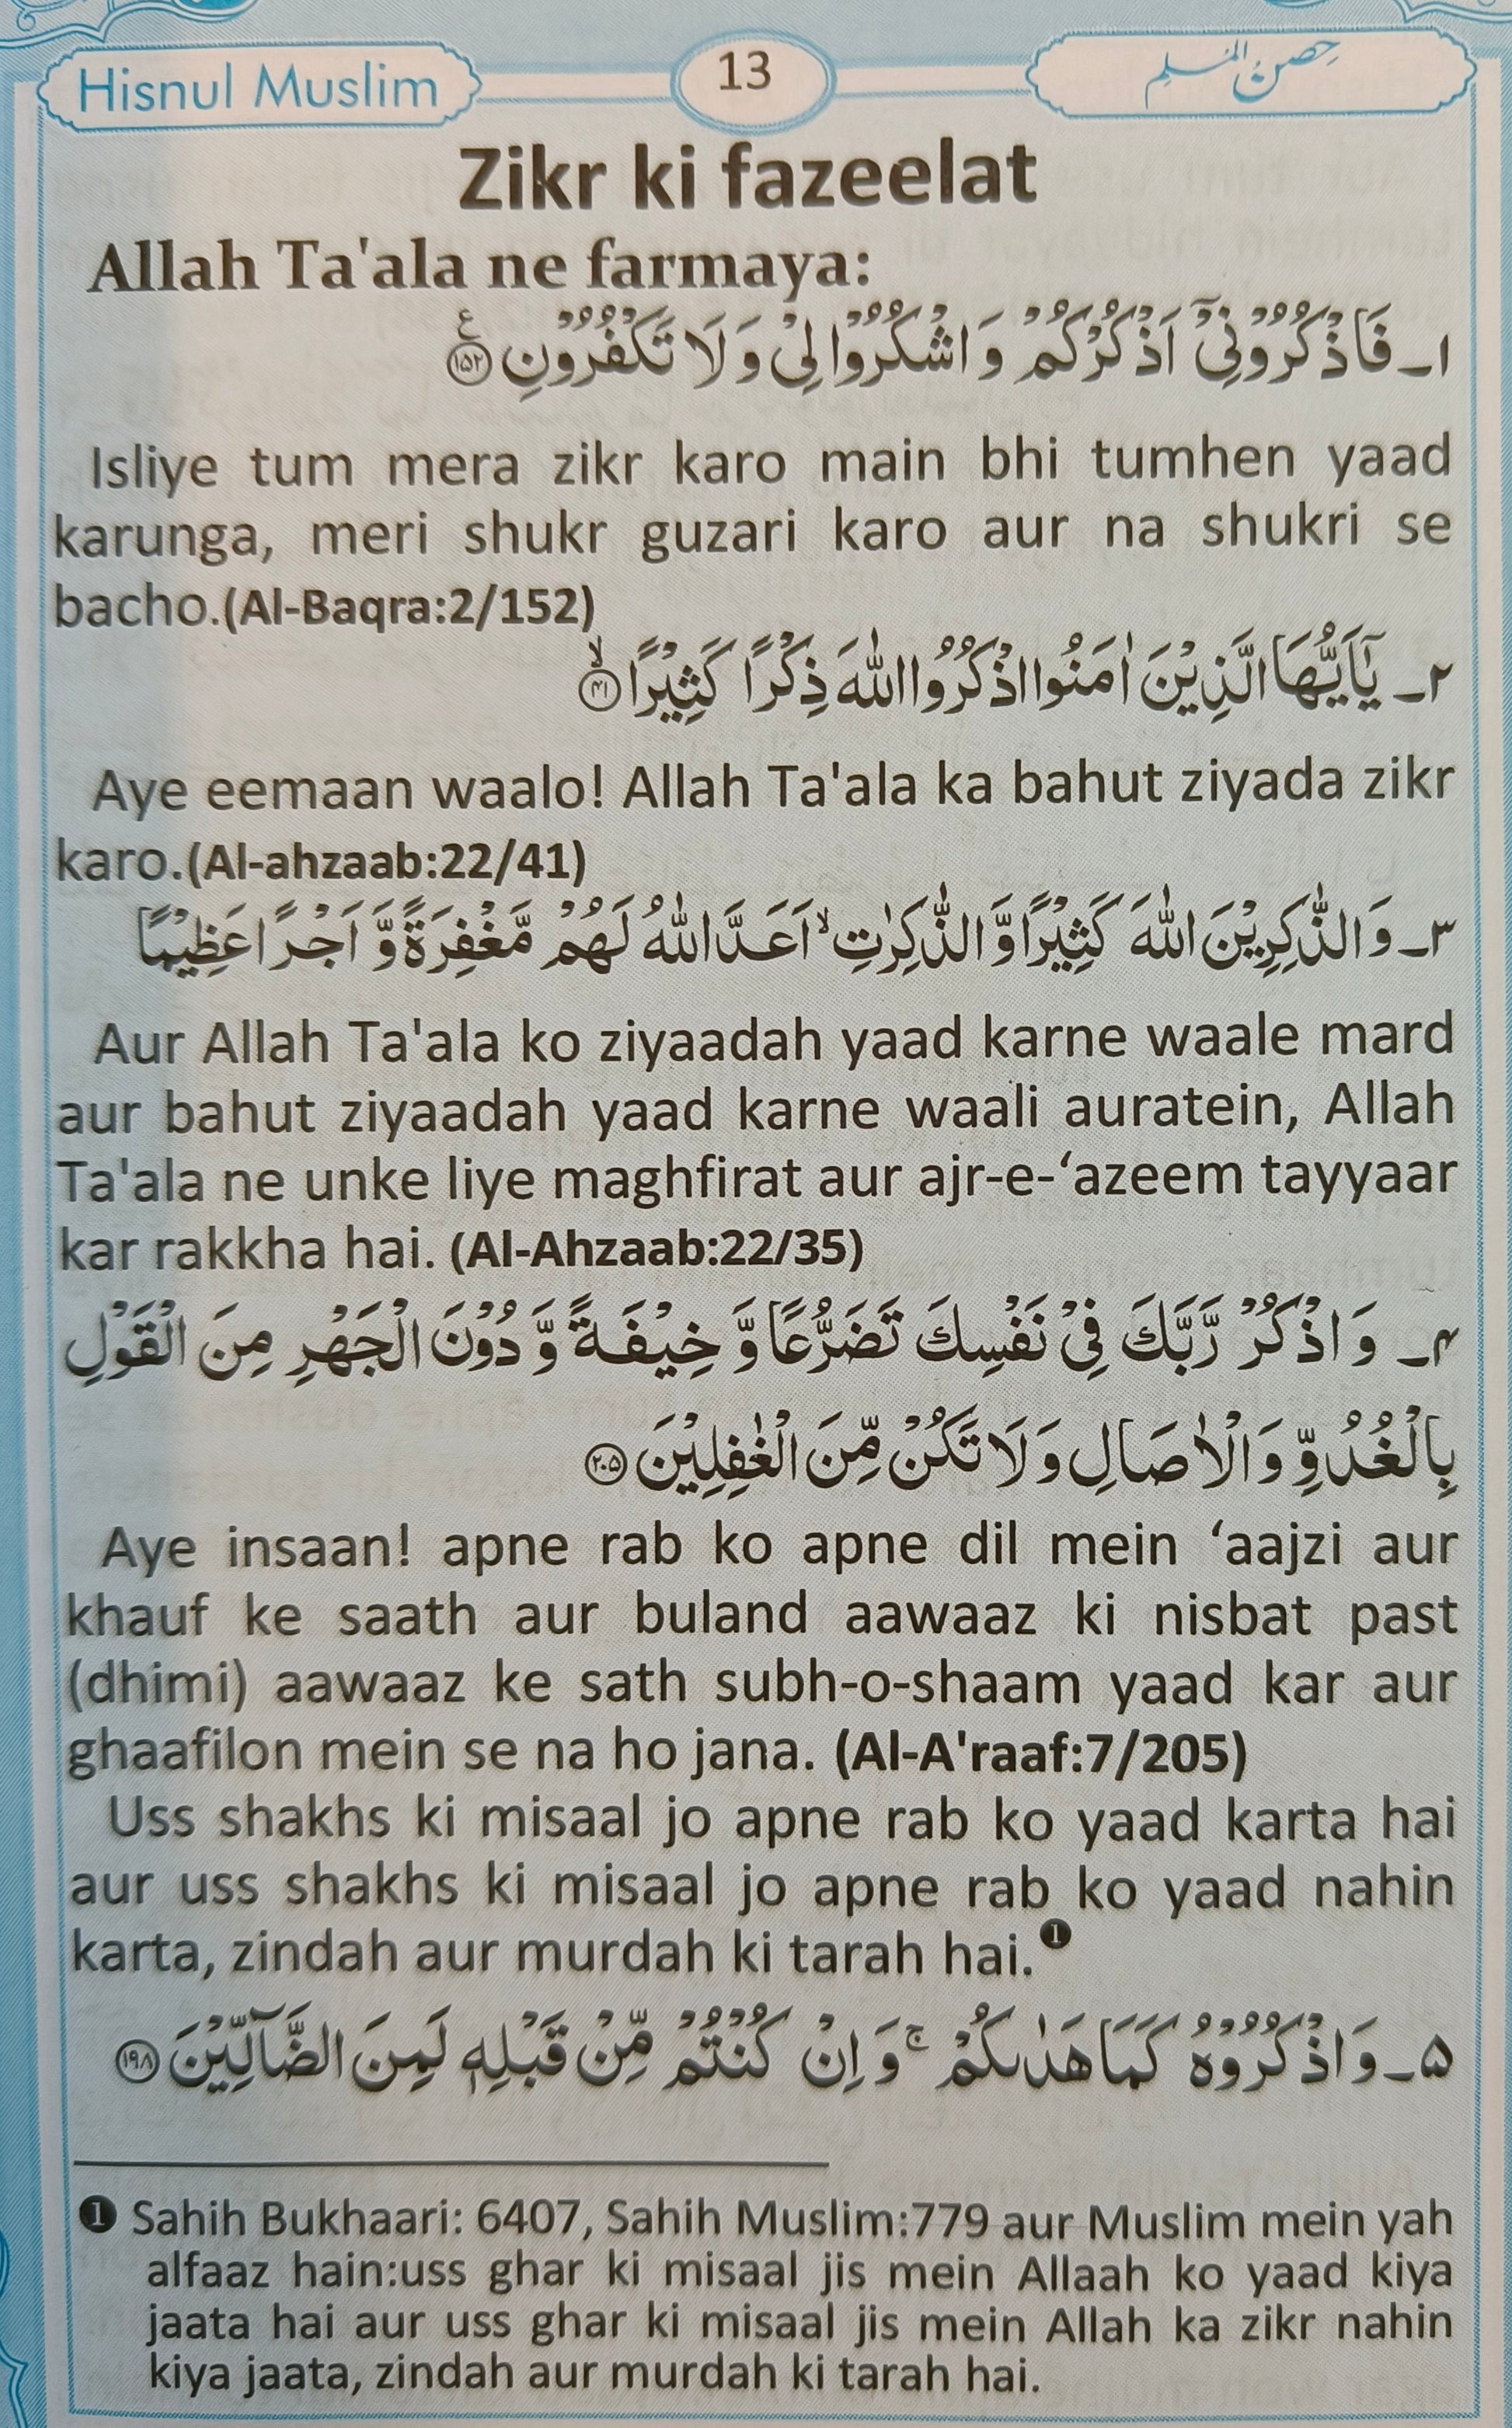 Hisnul Muslim
13
حصن المسلم
Zikr ki fazeelat
Allah Ta'ala ne farmaya:
۱۔ فَاذْكُرُوْنِيْٓ اَذْكُرْكُمْ وَاشْكُرُوْا لِيْ وَلَا تَكْفُرُوْنِ ﴿۱۵۲﴾ ع
Isliye tum mera zikr karo main bhi tumhen yaad
karunga, meri shukr guzari karo aur na shukri se
bacho.(Al-Baqra:2/152)
۲۔ يٰٓاَيُّهَا الَّذِيْنَ اٰمَنُوا اذْكُرُوا اللّٰهَ ذِكْرًا كَثِيْرًا ﴿۴۱﴾ ۙ
Aye eemaan waalo! Allah Ta'ala ka bahut ziyada zikr
karo.(Al-ahzaab:22/41)
۳۔ وَالذّٰكِرِيْنَ اللّٰهَ كَثِيْرًا وَّالذّٰكِرٰتِ ۙ اَعَدَّ اللّٰهُ لَهُمْ مَّغْفِرَةً وَّاَجْرًا عَظِيْمًا
Aur Allah Ta'ala ko ziyaadah yaad karne waale mard
aur bahut ziyaadah yaad karne waali auratein, Allah
Ta'ala ne unke liye maghfirat aur ajr-e-‘azeem tayyaar
kar rakkha hai. (Al-Ahzaab:22/35)
۴۔ وَاذْكُرْ رَّبَّكَ فِيْ نَفْسِكَ تَضَرُّعًا وَّ خِيْفَةً وَّ دُوْنَ الْجَهْرِ مِنَ الْقَوْلِ
بِالْغُدُوِّ وَالْاٰصَالِ وَلَا تَكُنْ مِّنَ الْغٰفِلِيْنَ ﴿۲۰۵﴾
Aye insaan! apne rab ko apne dil mein ‘aajzi aur
khauf ke saath aur buland aawaaz ki nisbat past
(dhimi) aawaaz ke sath subh-o-shaam yaad kar aur
ghaafilon mein se na ho jana. (Al-A'raaf:7/205)
Uss shakhs ki misaal jo apne rab ko yaad karta hai
aur uss shakhs ki misaal jo apne rab ko yaad nahin
karta, zindah aur murdah ki tarah hai.❶
۵۔ وَاذْكُرُوْهُ كَمَا هَدٰىكُمْ ۚ وَاِنْ كُنْتُمْ مِّنْ قَبْلِهٖ لَمِنَ الضَّآلِّيْنَ ﴿۱۹۸﴾
❶ Sahih Bukhaari: 6407, Sahih Muslim:779 aur Muslim mein yah
alfaaz hain:uss ghar ki misaal jis mein Allaah ko yaad kiya
jaata hai aur uss ghar ki misaal jis mein Allah ka zikr nahin
kiya jaata, zindah aur murdah ki tarah hai.